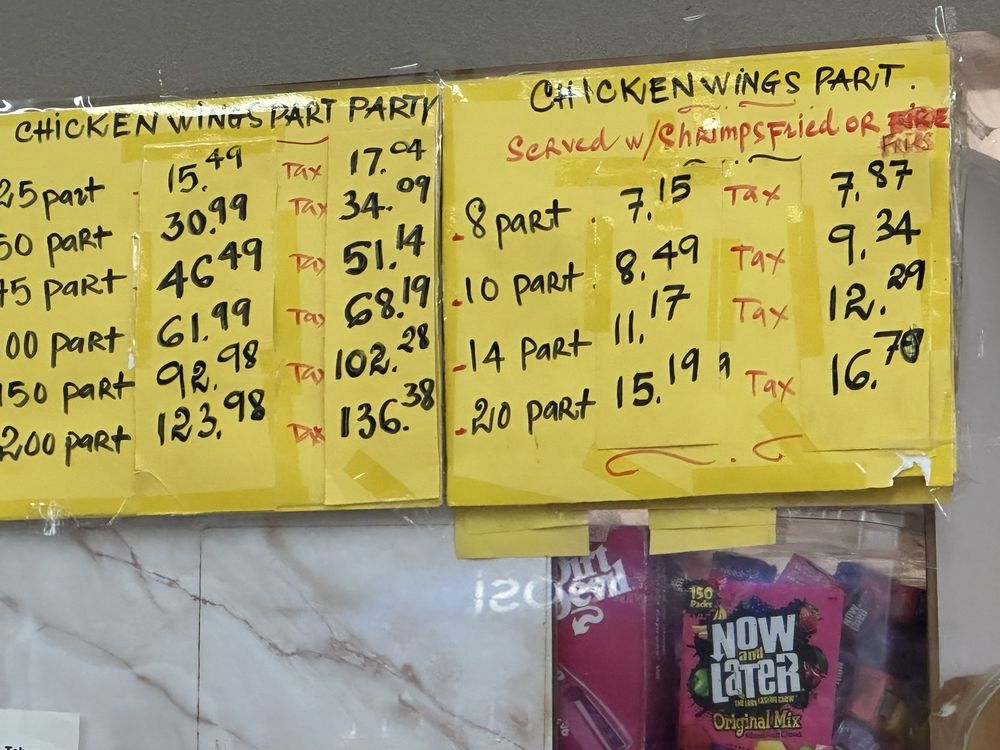 CHICKEN WINGS PART PARTY
25 part 15.49 Tax 17.04
50 part 30.99 Tax 34.09
75 part 46.49 Tax 51.14
00 part 61.99 Tax 68.19
150 part 92.98 Tax 102.28
200 part 123.98 Tax 136.38
CHICKEN WINGS PART.
Served w/Shrimps Fried OR
FRIES
.8 part 7.15 Tax 7.87
.10 part 8.49 Tax 9.34
.14 Part 11.17 Tax 12.29
.20 part 15.19 Tax 16.70
150
Packs
NOW
and
LATER
Original Mix